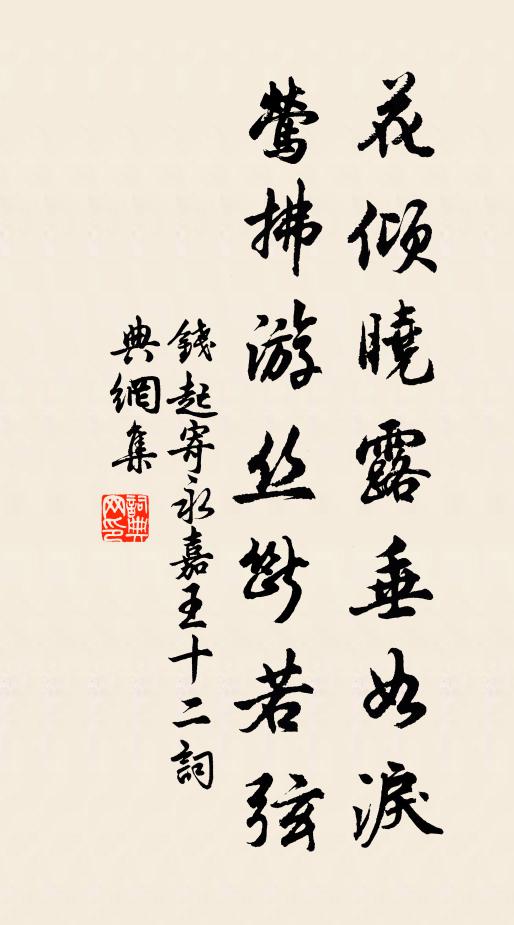 花倾曉露垂如淚
鶯拂游丝斷若弦
錢起寄永嘉王十二詞
典網集
詞典网印